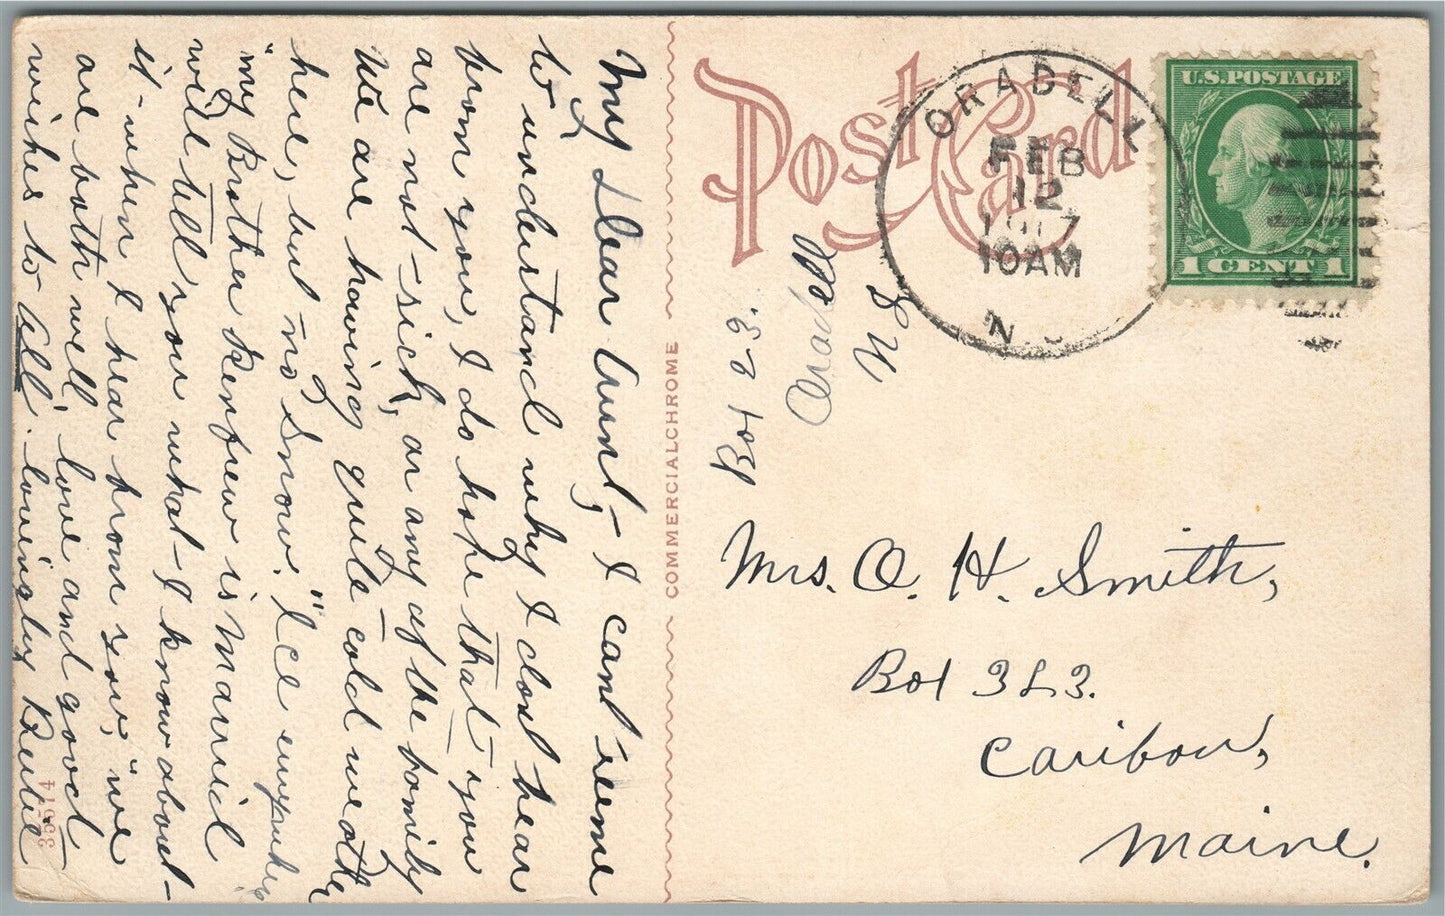 My Dear Aunt,- I cant seeme
to understand why I dont hear
from you, I do hope that you
are not sick, or any of the family
We are having quite cold weather
here, but no snow. "Ice everywhere"
my Brother Renfrew is married
will tell you what I know about
it - when I hear from you, we
are both well, love and good
wishes to all. lovingly
33614
COMMERCIALCHROME
Post Card
ORADELL
FEB
12
1917
10AM
N.J.
U.S. POSTAGE
1 CENT 1
Box 23.
Oradell
N J
Mrs. O. H. Smith,
Box 323.
Caribou,
Maine.